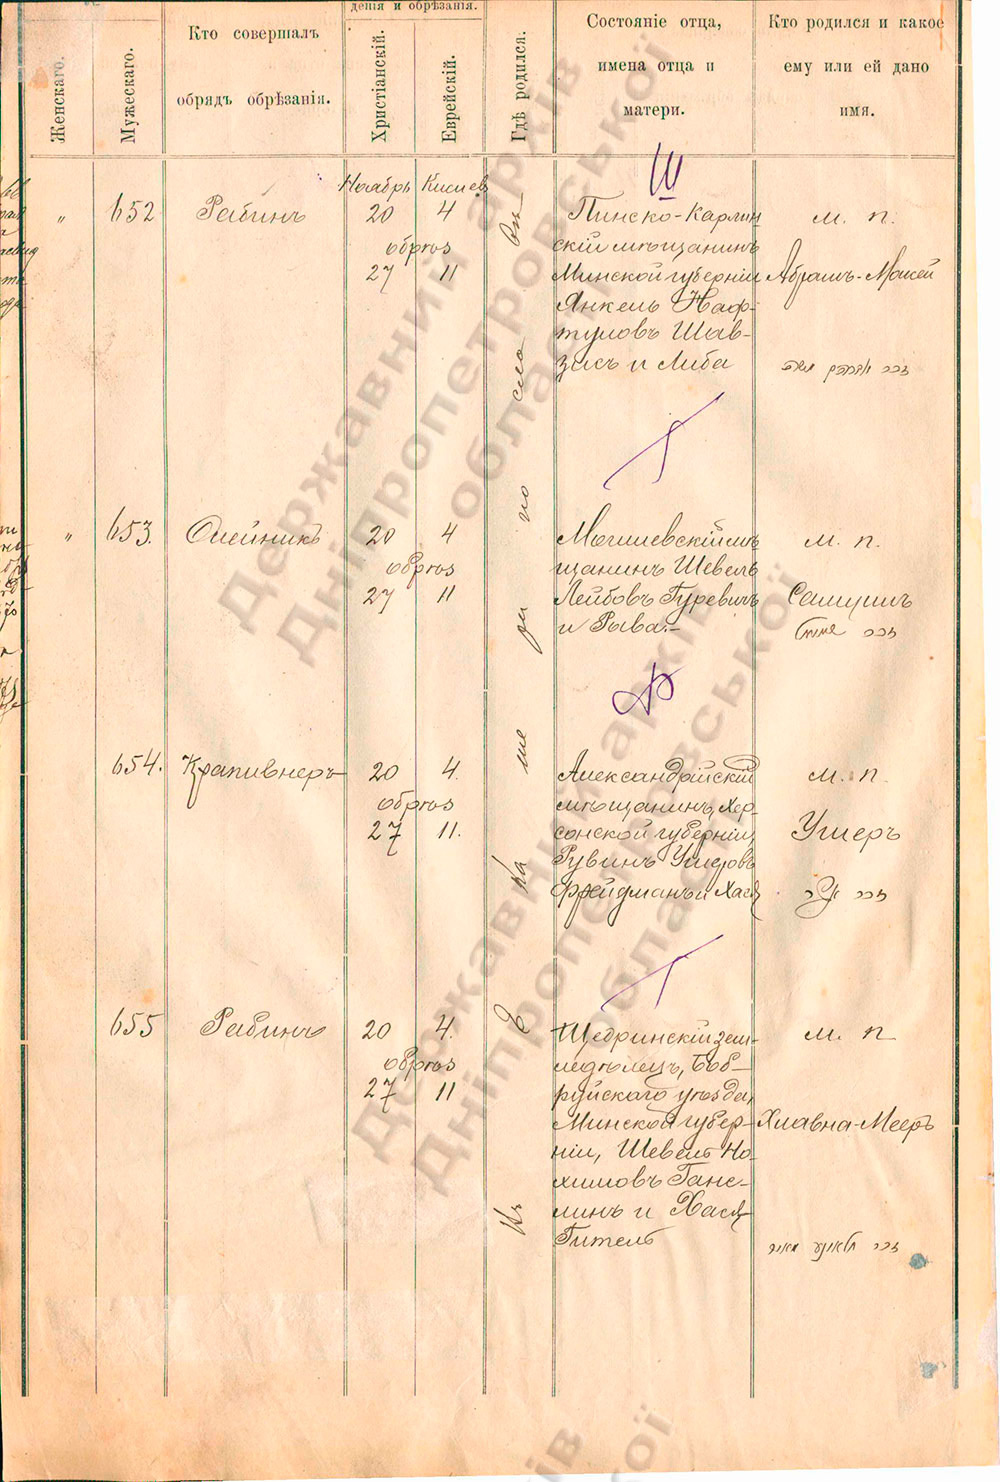 Женскаго.
Мужескаго.
Кто совершалъ
обрядъ обрѣзанія.
денія и обрѣзанія.
Христіанскій.
Еврейскій.
Гдѣ родился.
Состояніе отца,
имена отца и
матери.
Кто родился и какое
ему или ей дано
имя.
Ш
Ноябрь
„ 652 Рабинъ 20 4
обрѣз
27 11
Пинско-Карлин
скій мѣщанинъ
Минской губерніи
Янкель Наф-
туловъ Шав-
зисъ и Либа
м. п.
Абрамъ-Моисей
Г
„ 653. Олейникъ 20 4
обрѣз
27 11
Могилевскій мѣ
щанинъ Шевель
Лейбовъ Гуревичъ
и Рыва.-
м. п.
Самуилъ
654. Крапивнеръ 20 4.
обрѣз
27 11.
Александрійскій
мѣщанинъ, Хер-
сонской губерніи,
Рувинъ Ушеровъ
Фрейдманъ и Хася
м. п.
Ушеръ
Г
655 Рабинъ 20 4.
обрѣз
27 11
Щедринскій зем-
ледѣлецъ, Боб-
руйскаго уѣзда,
Минской губер-
ніи, Шевель Но-
химовъ Ганс-
линъ и Хася
Гитель
м. п
Хлавна-Мееръ
Державний архів
Дніпропетровської
області
Державний архів
Дніпропетровської
області